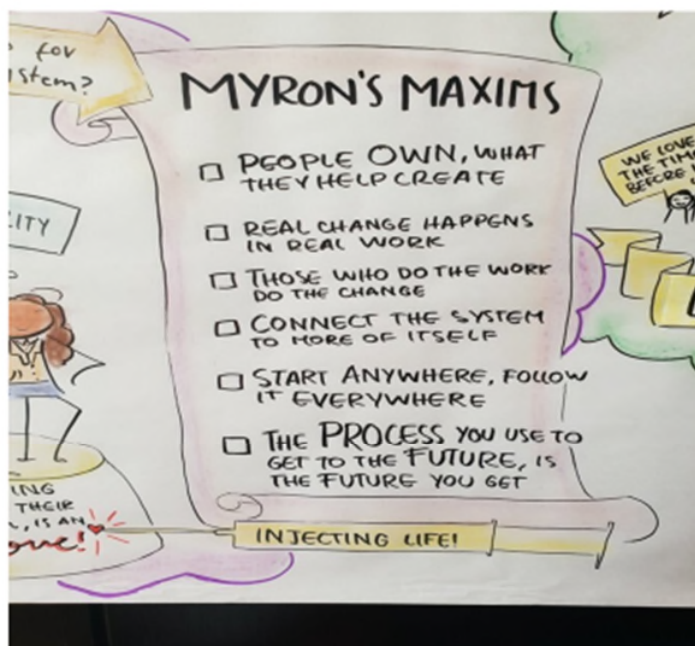 for
stem?
MYRON'S MAXIMS
PEOPLE OWN, WHAT
THEY HELP CREATE
REAL CHANGE HAPPENS
IN REAL WORK
THOSE WHO DO THE WORK
DO THE CHANGE
CONNECT THE SYSTEM
TO MORE OF ITSELF
START ANYWHERE, FOLLOW
IT EVERYWHERE
THE PROCESS YOU USE TO
GET TO THE FUTURE, IS
THE FUTURE YOU GET
INJECTING LIFE!
WE LOVE
THE TIME
BEFORE
CITY
ING
THEIR
, IS AN